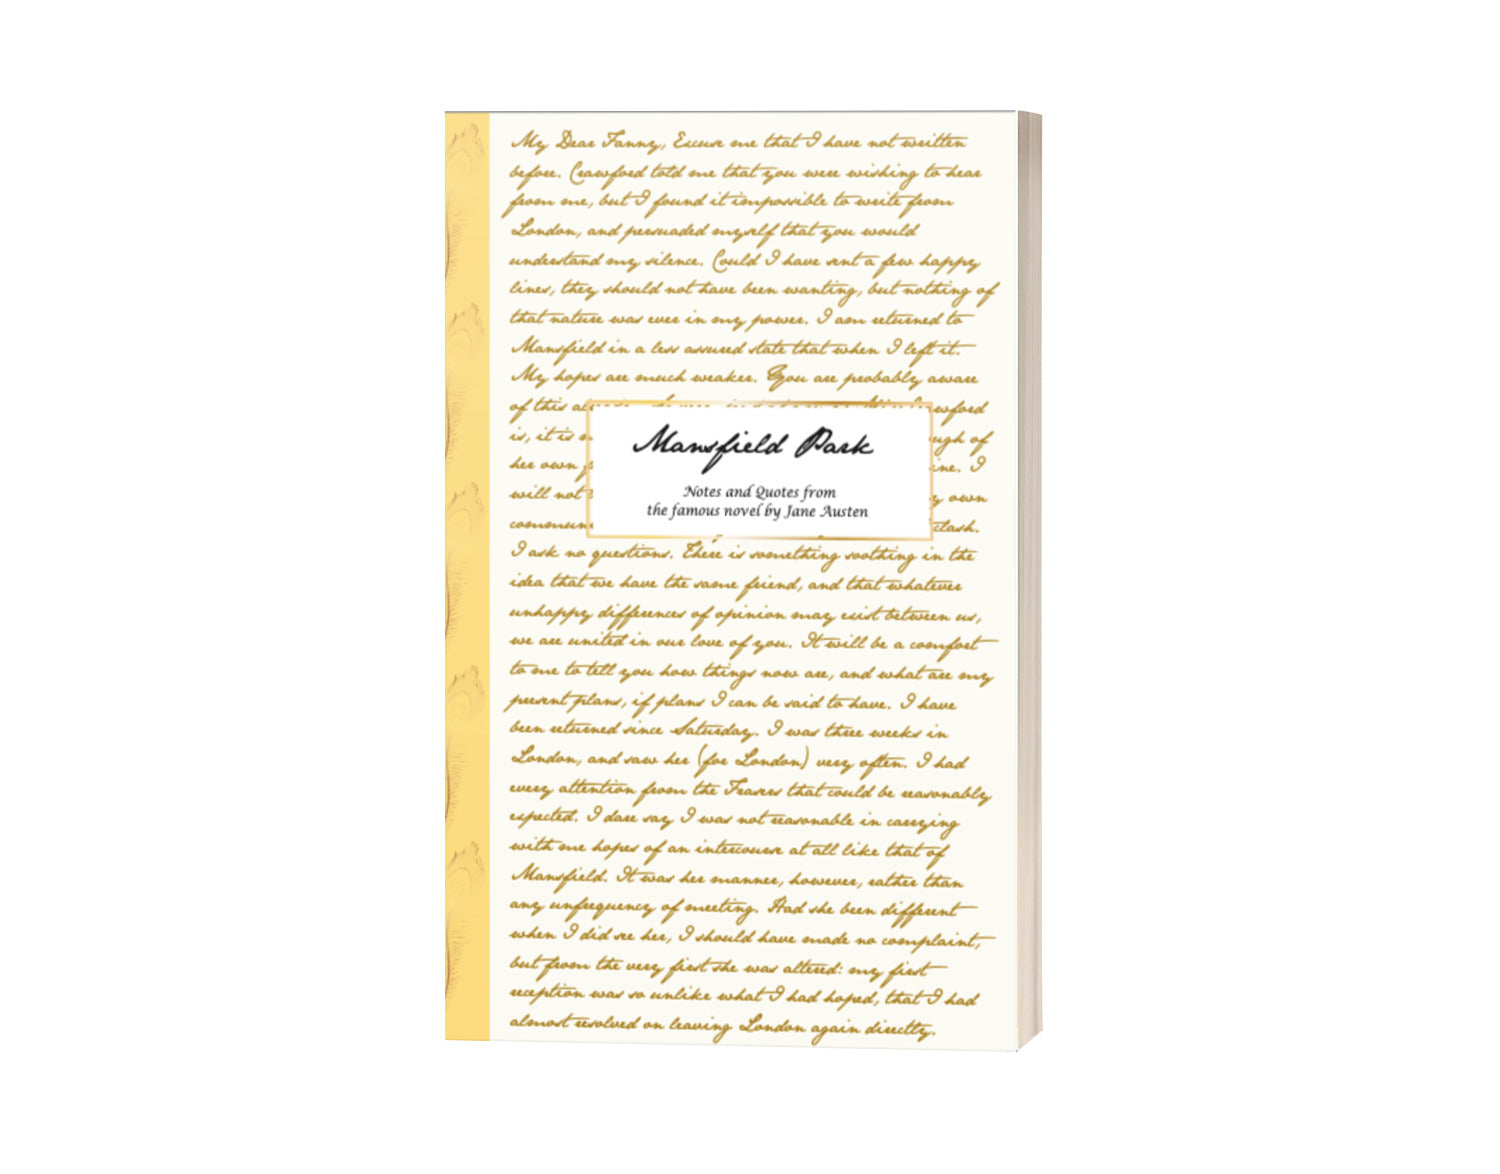 My Dear Fanny, Excuse me that I have not written
before. Crawford told me that you were wishing to hear
from me, but I found it impossible to write from
London, and persuaded myself that you would
understand my silence. Could I have sent a few happy
lines, they should not have been wanting, but nothing of
that nature was ever in my power. I am returned to
Mansfield in a less assured state that when I left it.
My hopes are much weaker. You are probably aware
of this
is, it is
her own
will not own
clash.
Mansfield Park
Notes and Quotes from
the famous novel by Jane Austen
I ask no questions. There is something soothing in the
idea that we have the same friend, and that whatever
unhappy differences of opinion may exist between us,
we are united in our love of you. It will be a comfort
to me to tell you how things now are, and what are my
present plans, if plans I can be said to have. I have
been returned since Saturday. I was three weeks in
London, and saw her (for London) very often. I had
every attention from the Frasers that could be reasonably
expected. I dare say I was not reasonable in carrying
with me hopes of an intercourse at all like that of
Mansfield. It was her manner, however, rather than
any unfrequency of meeting. Had she been different
when I did see her, I should have made no complaint,
but from the very first she was altered: my first
reception was so unlike what I had hoped, that I had
almost resolved on leaving London again directly.